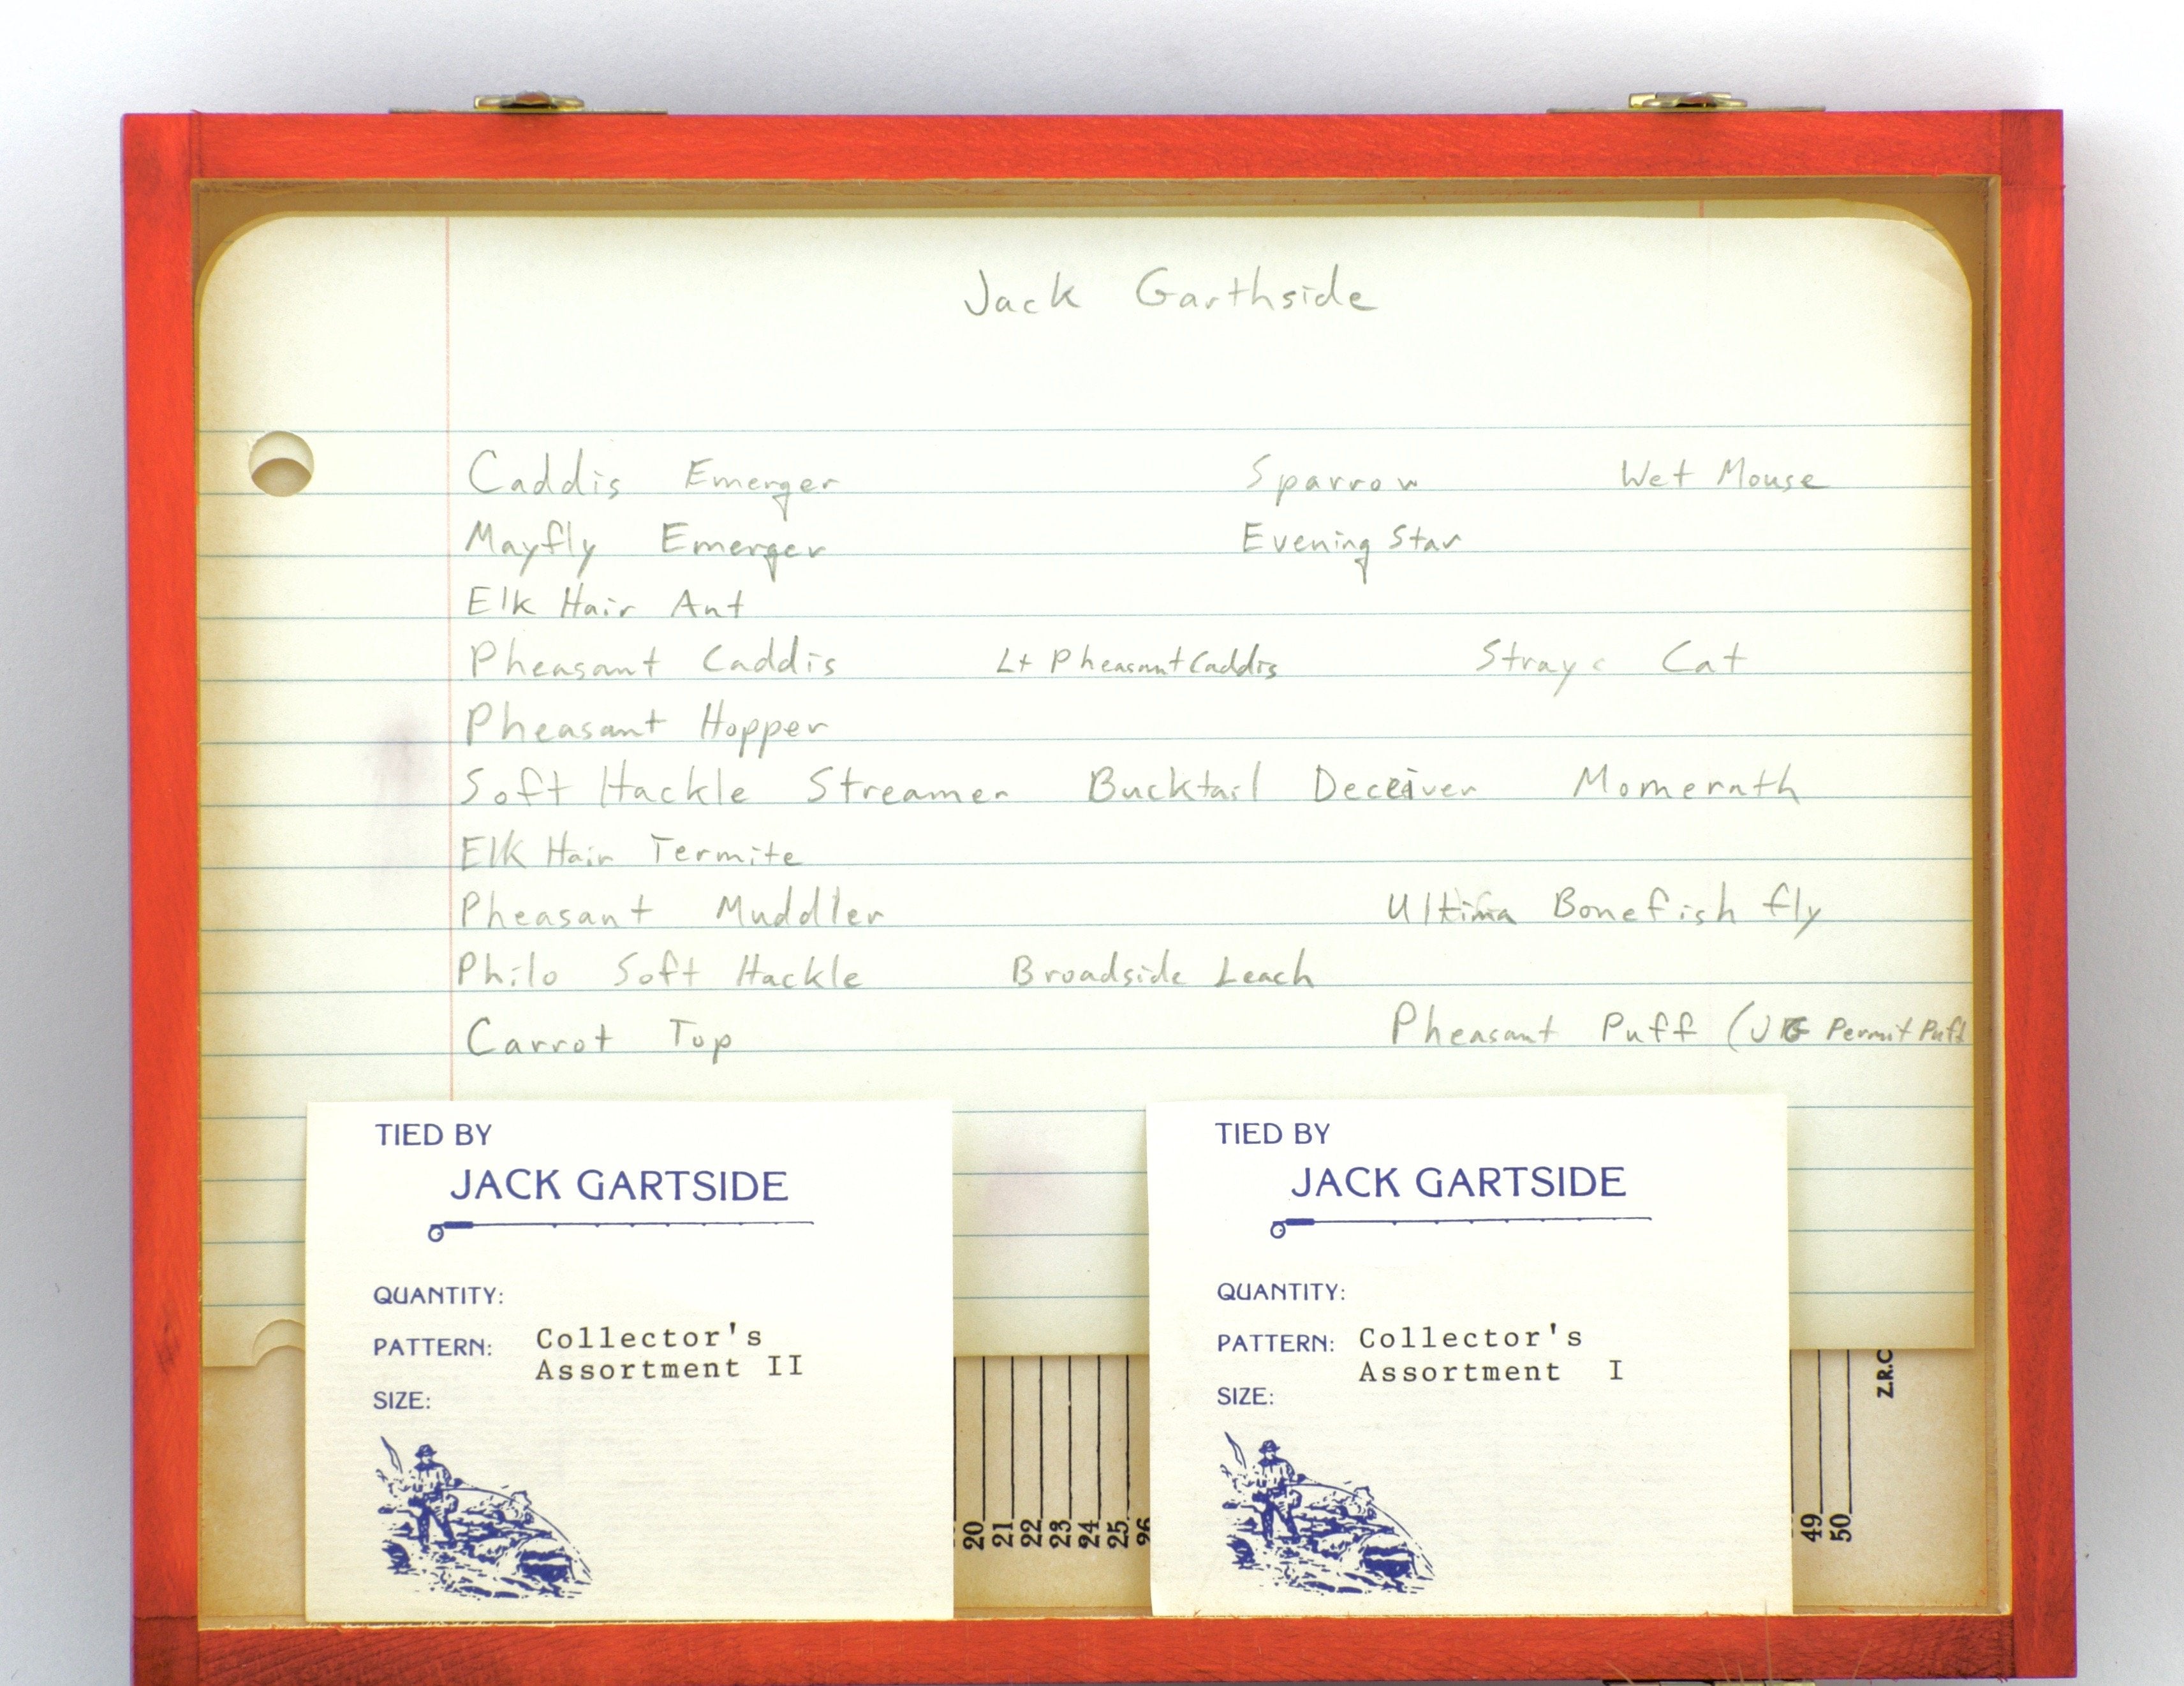 Jack Garthside
Caddis Emerger Sparrow Wet Mouse
Mayfly Emerger Evening Star
Elk Hair Ant
Pheasant Caddis Lt Pheasant Caddis Stray Cat
Pheasant Hopper
Soft Hackle Streamer Bucktail Deceiver Momerath
Elk Hair Termite
Pheasant Muddler Ultima Bonefish fly
Philo Soft Hackle Broadside Leach
Carrot Top Pheasant Puff (JG Permit Puff
TIED BY
JACK GARTSIDE
QUANTITY:
PATTERN: Collector's
Assortment II
SIZE:
TIED BY
JACK GARTSIDE
QUANTITY:
PATTERN: Collector's
Assortment I
SIZE:
20 21 22 23 24 25 26
49 50
Z.R.C